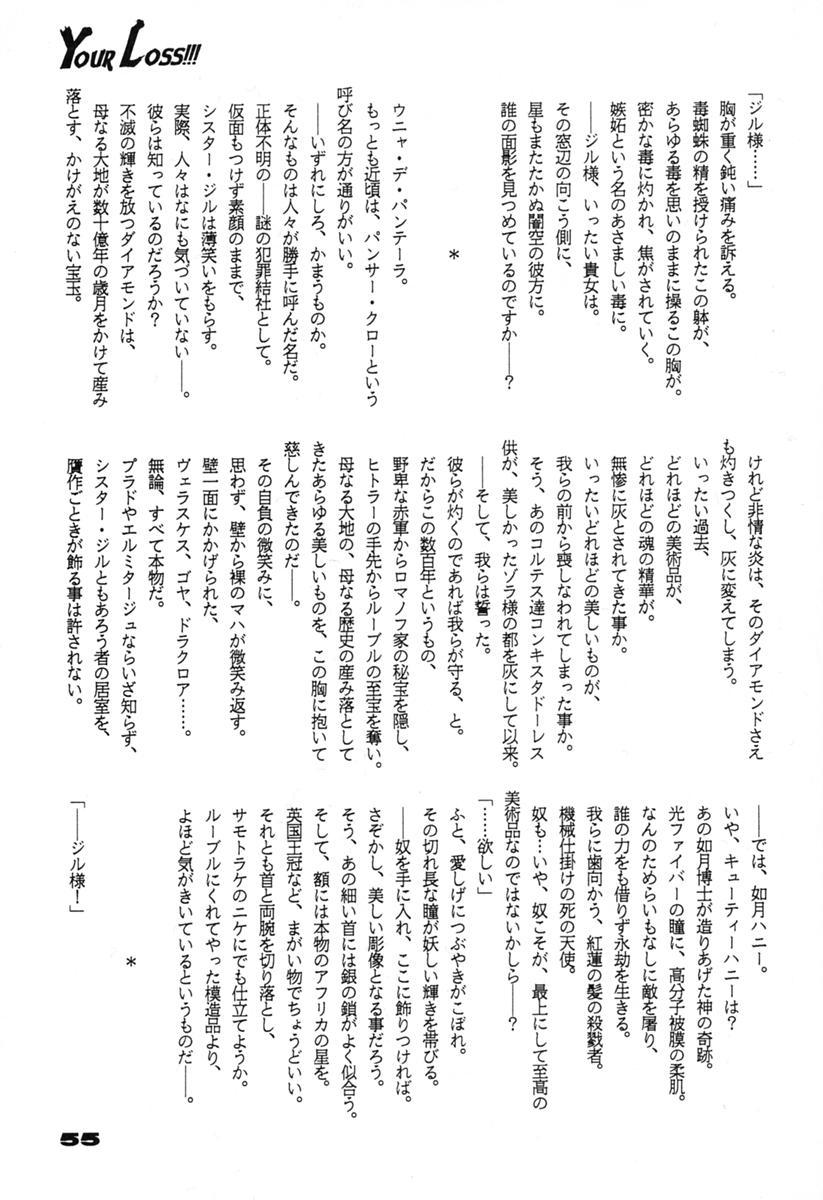 YOUR LOSS!!!
「ジル様……」
胸が重く鈍い痛みを訴える。
毒蜘蛛の精を授けられたこの躰が、
あらゆる毒を思いのままに操るこの胸が。
密かな毒に灼かれ、焦がされていく。
嫉妬という名のあさましい毒に。
――ジル様、いったい貴女は。
その窓辺の向こう側に、
星もまたたかぬ闇空の彼方に。
誰の面影を見つめているのですか――?
*
ウニャ・デ・パンテーラ。
もっとも近頃は、パンサー・クローという
呼び名の方が通りがいい。
――いずれにしろ、かまうものか。
そんなものは人々が勝手に呼んだ名だ。
正体不明の――謎の犯罪結社として。
仮面もつけず素顔のままで、
シスター・ジルは薄笑いをもらす。
実際、人々はなにも気づいていない――。
彼らは知っているのだろうか?
不滅の輝きを放つダイアモンドは、
母なる大地が数十億年の歳月をかけて産み
落とす、かけがえのない宝玉。
けれど非情な炎は、そのダイアモンドさえ
も灼きつくし、灰に変えてしまう。
いったい過去、
どれほどの美術品が、
どれほどの魂の精華が。
無惨に灰とされてきた事か。
いったいどれほどの美しいものが、
我らの前から喪しなわれてしまった事か。
そう、あのコルテス達コンキスタドーレス
供が、美しかったゾラ様の都を灰にして以来。
――そして、我らは誓った。
彼らが灼くのであれば我らが守る、と。
だからこの数百年というもの、
野卑な赤軍からロマノフ家の秘宝を隠し、
ヒトラーの手先からルーブルの至宝を奪い。
母なる大地の、母なる歴史の産み落として
きたあらゆる美しいものを、この胸に抱いて
慈しんできたのだ――。
その自負の微笑みに、
思わず、壁から裸のマハが微笑み返す。
壁一面にかかげられた、
ヴェラスケス、ゴヤ、ドラクロア……。
無論、すべて本物だ。
プラドやエルミタージュならいざ知らず、
シスター・ジルともあろう者の居室を、
贋作ごときが飾る事は許されない。
――では、如月ハニー。
いや、キューティーハニーは?
あの如月博士が造りあげた神の奇跡。
光ファイバーの瞳に、高分子被膜の柔肌。
なんのためらいもなしに敵を屠り、
誰の力をも借りず永劫を生きる。
我らに歯向かう、紅蓮の髪の殺戮者。
機械仕掛けの死の天使。
奴も…いや、奴こそが、最上にして至高の
美術品なのではないかしら――?
「……欲しい」
ふと、愛しげにつぶやきがこぼれ。
その切れ長な瞳が妖しい輝きを帯びる。
――奴を手に入れ、ここに飾りつければ。
さぞかし、美しい彫像となる事だろう。
そう、あの細い首には銀の鎖がよく似合う。
そして、額には本物のアフリカの星を。
英国王冠など、まがい物でちょうどいい。
それとも首と両腕を切り落とし、
サモトラケのニケにでも仕立てようか。
ルーブルにくれてやった模造品より、
よほど気がきいているというものだ――。
*
「――ジル様!」
55